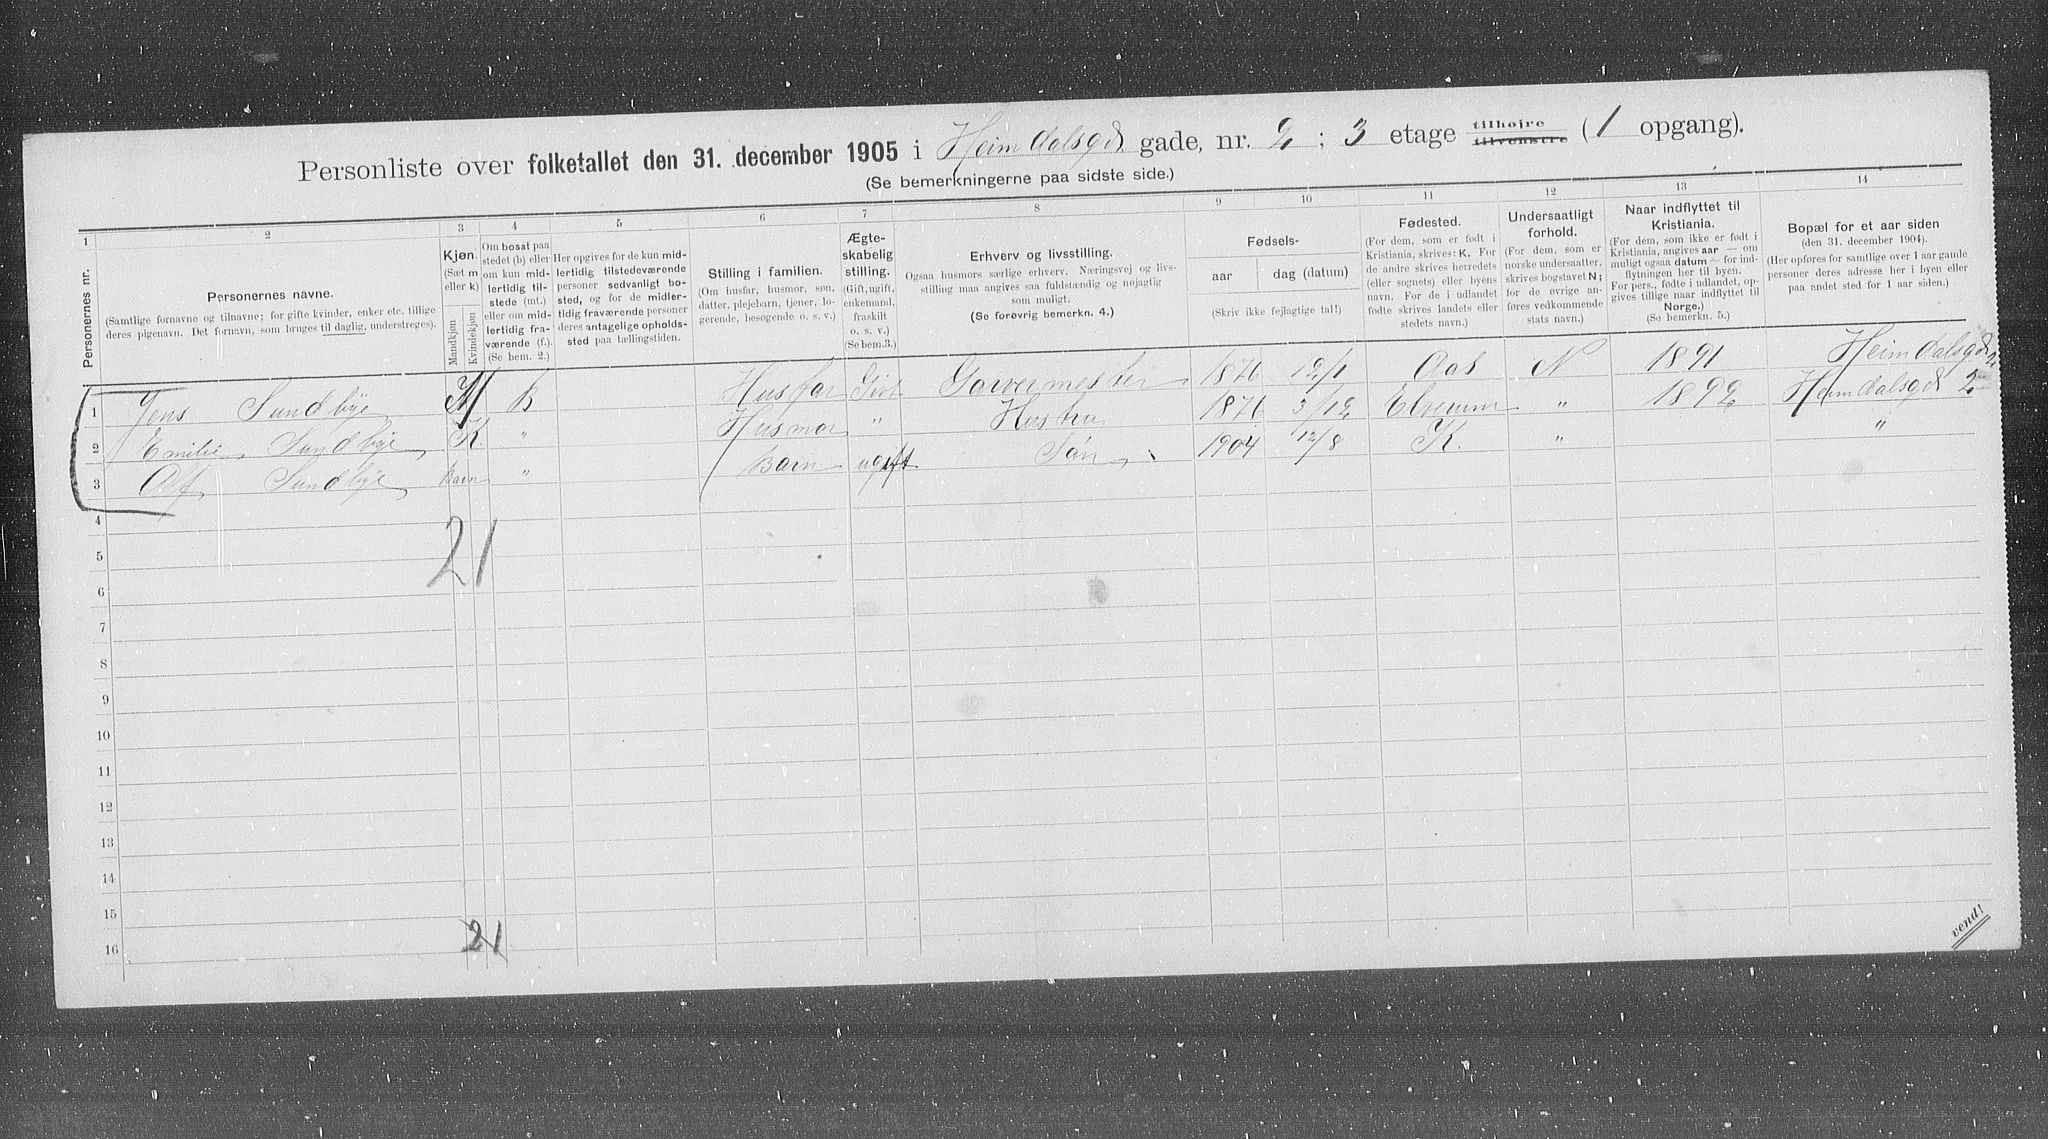 Personliste over folketallet den 31. december 1905 i Heimdalsgd. gade, nr. 2 ; 3 etage tilhøire tilvenstre ( 1 opgang).
(Se bemerkningerne paa sidste side.)
1 2 3 4 5 6 7 8 9 10 11 12 13 14
Personernes nr.
Personernes navne.
(Samtlige fornavne og tilnavne; for gifte kvinder, enker etc. tillige
deres pigenavn. Det fornavn, som bruges til daglig, understreges).
Kjøn.
(Sæt m
eller k)
Mandkjøn
Kvindekjøn
Om bosat paa
stedet (b) eller
om kun mid-
lertidig til-
stede (mt.)
eller om mid-
lertidig fra-
værende (f.).
(Se bem. 2.)
Her opgives for de kun mid-
lertidig tilstedeværende
personer sedvanligt bo-
sted, og for de midler-
tidig fraværende personer
deres antagelige opholds-
sted paa tællingstiden.
Stilling i familien.
(Om husfar, husmor, søn,
datter, plejebarn, tjener, lo-
gerende, besøgende o. s. v.)
Ægte-
skabelig
stilling.
(Gift, ugift,
enkemand,
fraskilt
o. s. v.)
(Se bem. 3.)
Erhverv og livsstilling.
Ogsaa husmors særlige erhverv. Næringsvej og livs-
stilling maa angives saa fuldstændig og nøjagtig
som muligt.
(Se forøvrig bemerkn. 4.)
Fødsels-
aar
dag (datum)
(Skriv ikke fejlagtige tal!)
Fødested.
(For dem, som er født i
Kristiania, skrives: K. For
de andre skrives herredets
(eller sognets) eller byens
navn. For de i udlandet
fødte skrives landets eller
stedets navn.)
Undersaatligt
forhold.
(For dem, som er
norske undersaatter,
skrives bogstavet N;
for de øvrige an-
føres vedkommende
stats navn.)
Naar indflyttet til
Kristiania.
(For dem, som ikke er født i
Kristiania, angives aar — om
muligt ogsaa datum — for ind-
flytningen her til byen.
For pers., fødte i udlandet, op-
gives tillige naar indflyttet til
Norge.)
(Se bemerkn. 5.)
Bopæl for et aar siden
(den 31. december 1904).
(Her opføres for samtlige over 1 aar gamle
personer deres adresse her i byen eller
paa andet sted for 1 aar siden.)
1 Jens Sundbye M B Husfar Gift Garvermester 1876 12/1 Aas N 1891 Heimdalsgd 2
2 Emilie Sundbye K " Husmor " Hustru 1871 3/12 Elverum " 1892 Heimdalsgd 2
3 Alf Sundbye Barn " Barn ugift Søn 1904 12/8 K. " "
4
21
5
6
7
8
9
10
11
12
13
14
15
16
21
vend!